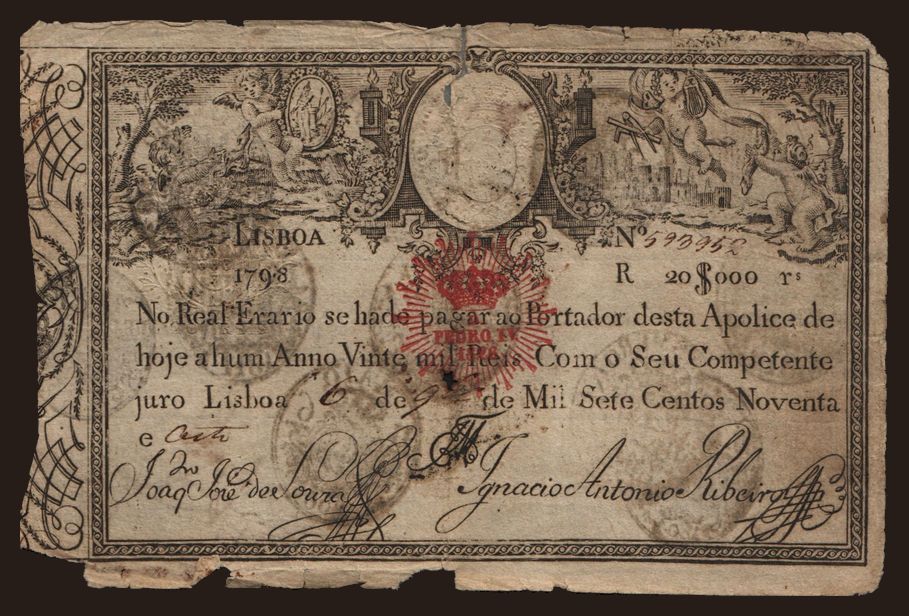 LISBOA Nº 593952
1798 R 20$000 rs
No Real Erario se hade pagar ao Portador desta Apolice de
PEDRO IV
hoje a hum Anno Vinte mil Reis Com o Seu Competente
juro Lisboa 6 de de Mil Sete Centos Noventa
e
Joaq José de Souza Ignacio Antonio Ribeiro